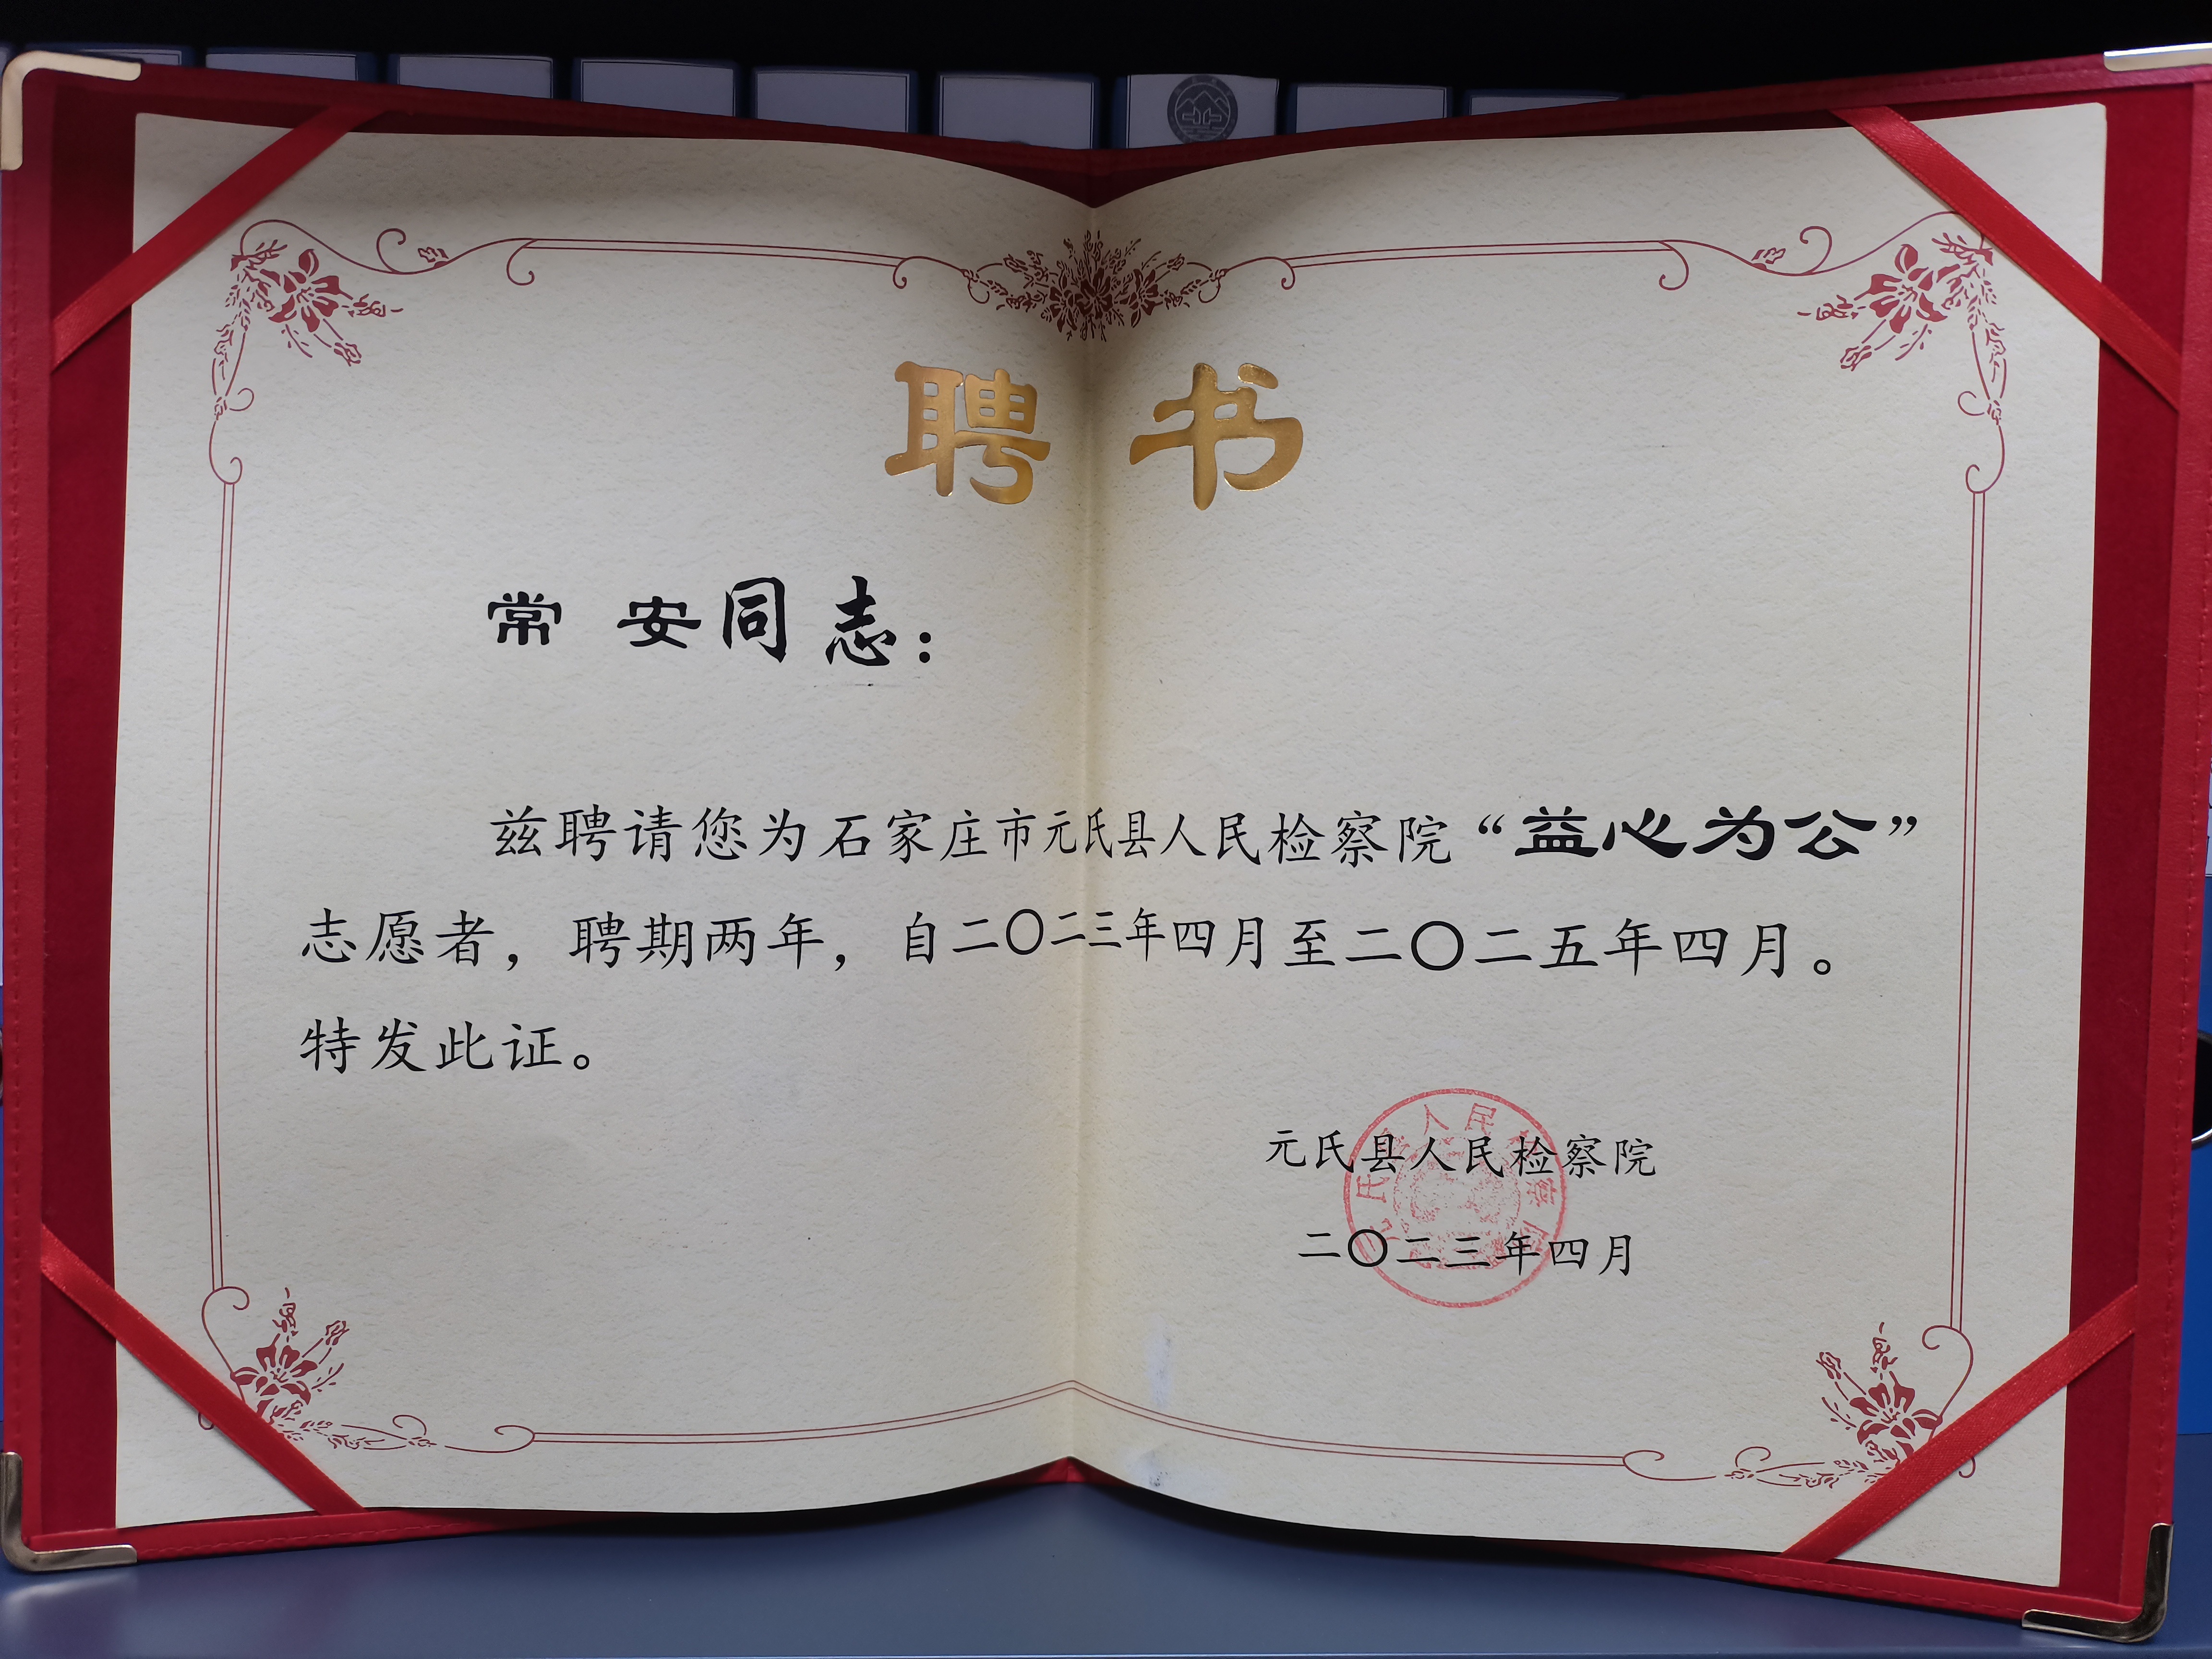 聘书
常 安同志：
兹聘请您为石家庄市元氏县人民检察院“益心为公”
志愿者，聘期两年，自二〇二三年四月至二〇二五年四月。
特发此证。
元氏县人民检察院
二〇二三年四月